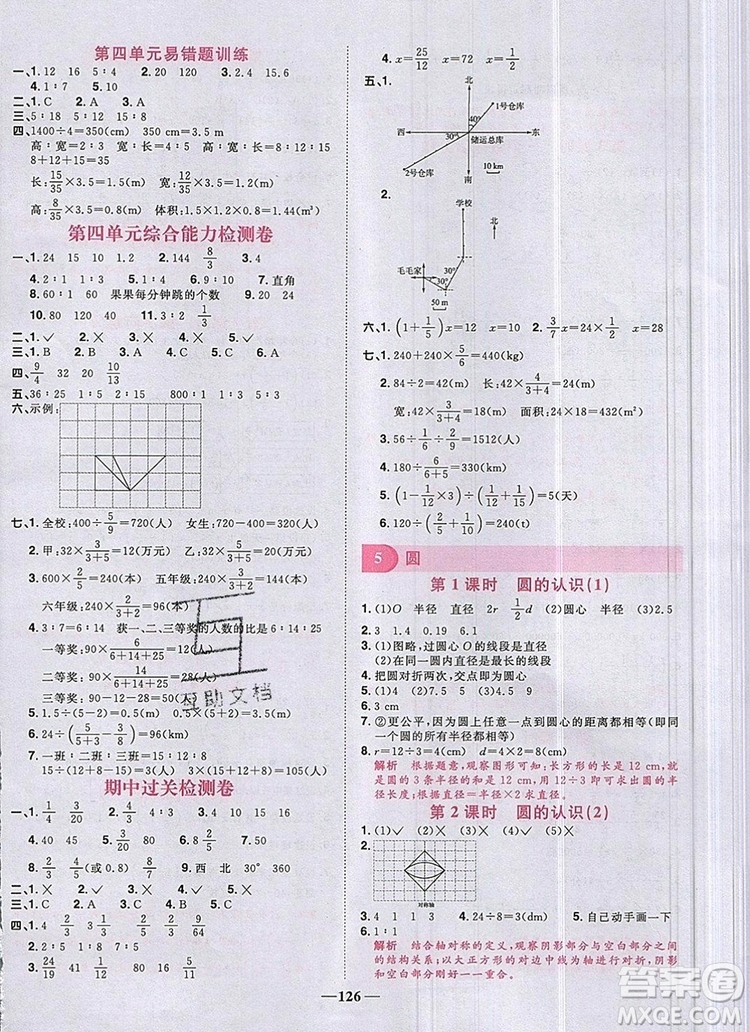 第四单元易错题训练
一、1. 12 16 5∶4 2. 20 19 3. 2.4 15.6
4. 1∶7 5. 60 80
二、1. C 2. A 3. A
三、5∶18 5∶12 5∶13
四、1400÷4=350(cm) 350 cm=3.5 m
高∶宽=2∶3=8∶12 高∶宽∶长=8∶12∶15
8+12+15=35
长:15/35×3.5=1.5(m) 宽:12/35×3.5=1.2(m)
高:8/35×3.5=0.8(m) 体积:1.5×1.2×0.8=1.44(m³)
第四单元综合能力检测卷
一、1. 24 15 10 1.2 2. 144 8/3 3. 1∶4
4. 2∶1 2 5. 1∶10 6. 9∶10 7. 直角
8. 60∶1 果果每分钟跳的个数 9. 20 24
10. 80 120 40 11. 3∶2 1/3
二、1. ✓ 2. × 3. × 4. × 5. ×
三、1. B 2. C 3. A 4. B 5. A
四、9/4 32 20 10/3
五、36∶25 1∶5 2∶15 800∶1 1∶3
六、示例:
七、1. 全校:400÷5/9=720(人) 女生:720-400=320(人)
2. 甲:32×3/3+5=12(万元) 乙:32×5/3+5=20(万元)
3. 600×2/5=240(本) 五年级:240×3/3+2=144(本)
六年级:240×2/3+2=96(本)
4. 3∶7=6∶14 获一、二、三等奖的人数的比是6∶14∶25
一等奖:90×6/6+14+25=12(人)
二等奖:90×14/6+14+25=28(人)
三等奖:90-12-28=50(人)
5. 1.5÷(5-2)=0.5(t) 0.5×(5+2)=3.5(t)
6. 24÷(5/5+3-3/5+3)=96(km)
7. 一班∶二班∶三班=15∶12∶8
15÷(12-8)×(15+12+8)=131.25(元)
期中过关检测卷
一、1. 1/4 3/20 2. 3 4 15 15 3. 4 1/3
4. 40 45 5. 2/5 6. 21
7. 4/15 8. 4/5(或0.8) 8 9. 西 北 30 360
二、1. ✓ 2. × 3. × 4. ✓ 5. ×
三、1. C 2. A 3. A 4. B 5. B
四、1. 4 2/3 3/2 1/9 1/4 1/4 1/6 3/20
2. 1∶5 2∶3 9∶4
3. 14 24/11 51 3/4
4. x=25/12 x=3/5 x=1/2
五、1.
北
1号仓库
40°
西 30° 储运总库 东
2号仓库
南
10 km
2.
学校
北
毛毛家
30°
30° 30°
50 m
六、1. (1+1/5)x=12 x=10 2. 3/7x=24×1/2 x=28
七、1. 240+240×5/6=440(kg)
2. 84÷2=42(m) 长:42×4/3+4=24(m)
宽:42×3/3+4=18(m) 面积:24×18=432(m²)
3. 56÷1/6÷2/9=1512(人)
4. 180÷6/6+5=330(km)
5. (1-1/15×3)÷(1/10+1/15)-1/6=5(天)
6. 120÷(2/2+1-1/5+1)=240(t)
5 圆
第1课时 圆的认识(1)
1. (1)O 半径 直径 2r 1/2d (2)圆心 半径 (3)2.5
2. 3 1.4 0.19 6.1
3. (1)图略,过圆心O的线段是直径
(2)在同一圆内直径是最长的线段
4. 把圆对折两次,交点即为圆心
5. (1)4 (2)7.5 (3)5 (4)12
6. 9
7. ②更公平,因为圆上任意一点到圆心的距离都相等(或在同一圆中所有半径都相等)
8. r=12÷3=4(cm) S=4×2=8(cm)
解析 根据题意,观察图形可知:长方形的长是12 cm,就是圆的3条半径的和是12 cm,用12÷3即可求出圆的半径,直径=半径×2即可求出圆的直径。
第2课时 圆的认识(2)
1. (1)✓ (2)× (3)× (4)✓
2.
对称轴
3. 4 1 3 1 2 4. 24÷8=3(dm) 5. 自己动手画一下
6. 1∶1
解析 结合轴对称的定义,观察阴影部分与空白部分之间的结构关系,以大正方形的对边中线为轴进行对折,阴影部分和空白部分能一一重合。
126
互助文档
答案圈
MXQE.COM